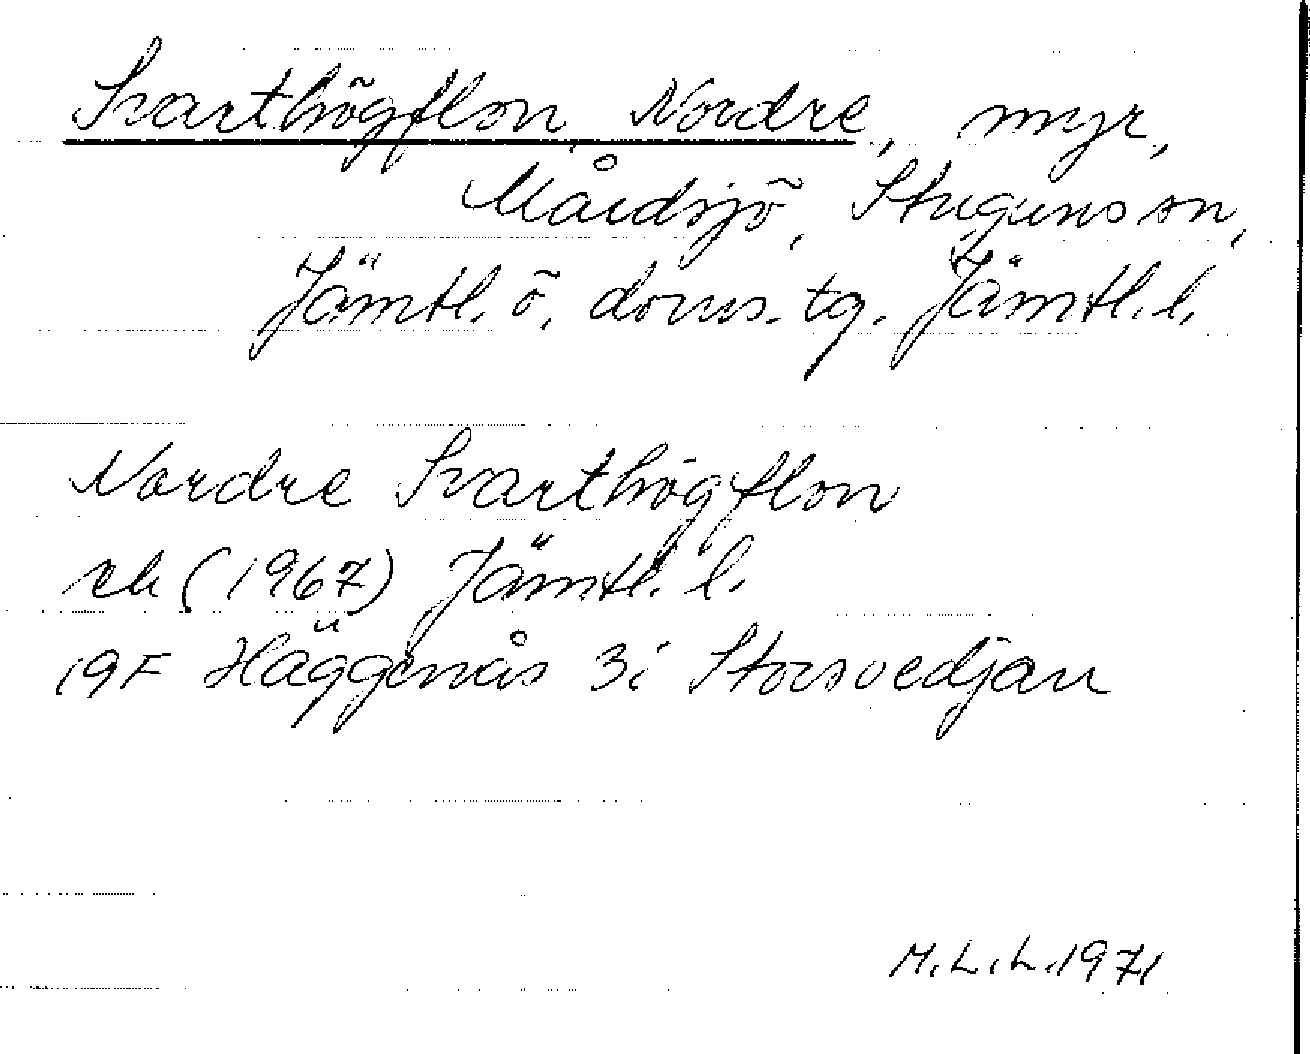 Svarthögflon, Nordre, myr,
Mårdsjö, Stuguns sn,
Jämtl. ö. doms. tg. Jämtl. l.
Nordre Svarthögflon
ek (1967) Jämtl. l.
19F Häggenås 3i Storsvedjan
M.L.L. 1971